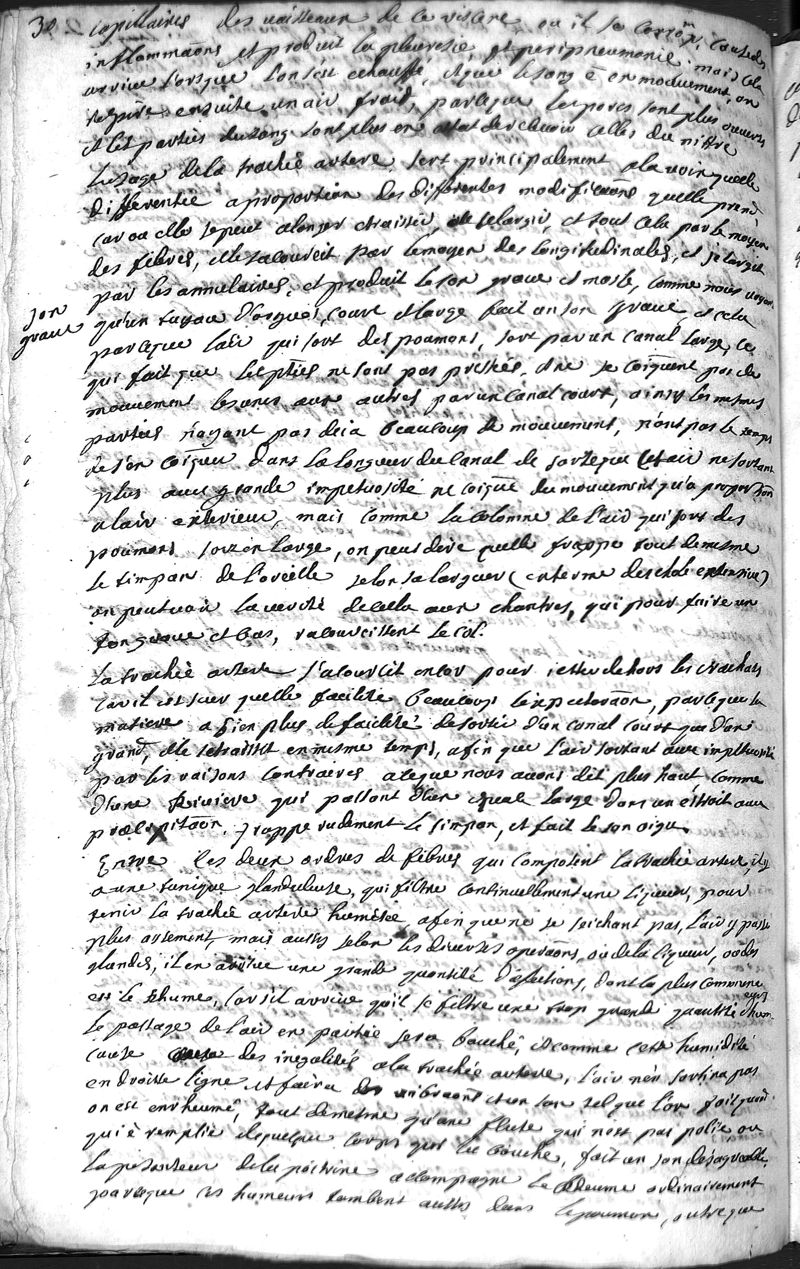 30 capillaires des vaisseaux de ce viscere ou il se corromp, cause des
inflammaons et produit la pleuresie et peripneumonie. mais cela
arrive lorsque l'on s'est echauffé, et que le sang ē en mouvement, on
respire ensuite un air froid, parceque les pores sont plus ouverts
et les parties du sang sont plus en estat de recevoir celles du nittre
L'usage de la trachée artere sert principalement a la voix quelle
differentie a proportion des differentes modificaons quelle prend
car ou elle se peut alonger etraissir, elargir, et tout cela par le moyen
des fibres, elle s'acourcit par le moyen des longitudinales, et s'elargit
par les annulaires, et produit le son grave et masle, comme nous voyons
son
grave
qu'un tuyau d'orgues, court et large fait un son grave et cela
parceque l'air qui sort des poumons, sort par un canal large, ce
qui fait que les pties ne sont pas pressées, et ne se coiquent pas de
mouvement les unes aux autres par un canal court, ainsy les mesmes
parties n'ayant pas deia beaucoup de mouvement, n'ont pas le temps
de s'en coiquer dans la longueur du canal de sorte que cet air ne sortant
plus avec grande impetuosité ne coique du mouvement qu'a proportion
a l'air exterieur, mais comme la colomne de l'air qui sort des
poumons sort en large, on peut dire quelle frappe tout de mesme
le timpan de l'oreille selon sa largeur (en terme d'eschole extensive)
on peut voir la verité de cela aux chantres, qui pour faire un
son grave et bas, racourcissent le col.
La trachée artere s'acourcit encor pour ietter dehors les crachats
car il est seur quelle facilite beaucoup l'expectoraon, parceque la
matiere a bien plus de facilité de sortir d'un canal court que d'un
grand, elle s'etraissit en mesme temps, afin que l'air sortant avec impetuosité
par les raisons contraires a ce que nous avons dit plus haut comme
d'une riviere qui passant d'un canal large dans un estroit avec
præcipitaon, frappe rudement le timpan, et fait le son aigu.
Entre les deux ordres de fibres qui composent la trachée artere, il y
a une tunique glanduleuse, qui filtre continuellement une liqueur, pour
tenir la trachée artere humetée afin que ne se seichant pas, l'air y passe
plus aisement, mais aussy selon les diverses operaons, ou de la liqueur, ou des
glandes, il en arrive une grande quantité d'afections, dont la plus commune
est le rhume, car s'il arrive qu'il se filtre une trop grande quantité d'hum
eurs
le passage de l'air en partie sera bouché, et comme cette humidité
cause des inegalités a la trachée artere, l'air n'en sortira pas
en droitte ligne et faira des vibraons et un son tel que l'on fait quand
on est enrhumé, tout de mesme qu'une flute qui n'est pas polie ou
qui ē remplie de quelque corps qui la bouche, fait un son desagreable.
La pesanteur de la poictrine accompagne le rheume ordinairement
parceque ces humeurs tombent aussy dans le poumon, outre que